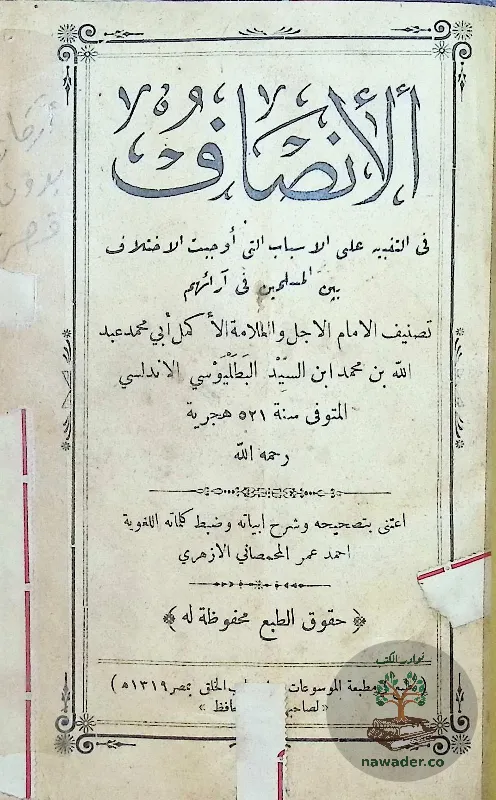 ألأنصاف
فى التنبيه على الاسباب التى أوجبت الاختلاف
بين المسلمين فى آرائهم
تصنيف الامام الاجل والعلامة الأكمل أبي محمد عبد
الله بن محمد ابن السِّيْد البَطَلْيَوْسي الاندلسي
المتوفى سنة ٥٢١ هجرية
رحمه الله
اعتنى بتصحيحه وشرح ابياته وضبط كلماته اللغوية
احمد عمر المحمصاني الازهري
حقوق الطبع محفوظة له
مطبعة الموسوعات الخلق بمصر ١٣١٩ھ )
« لصاحبي حافظ »
نوادر الكتب
nawader.co